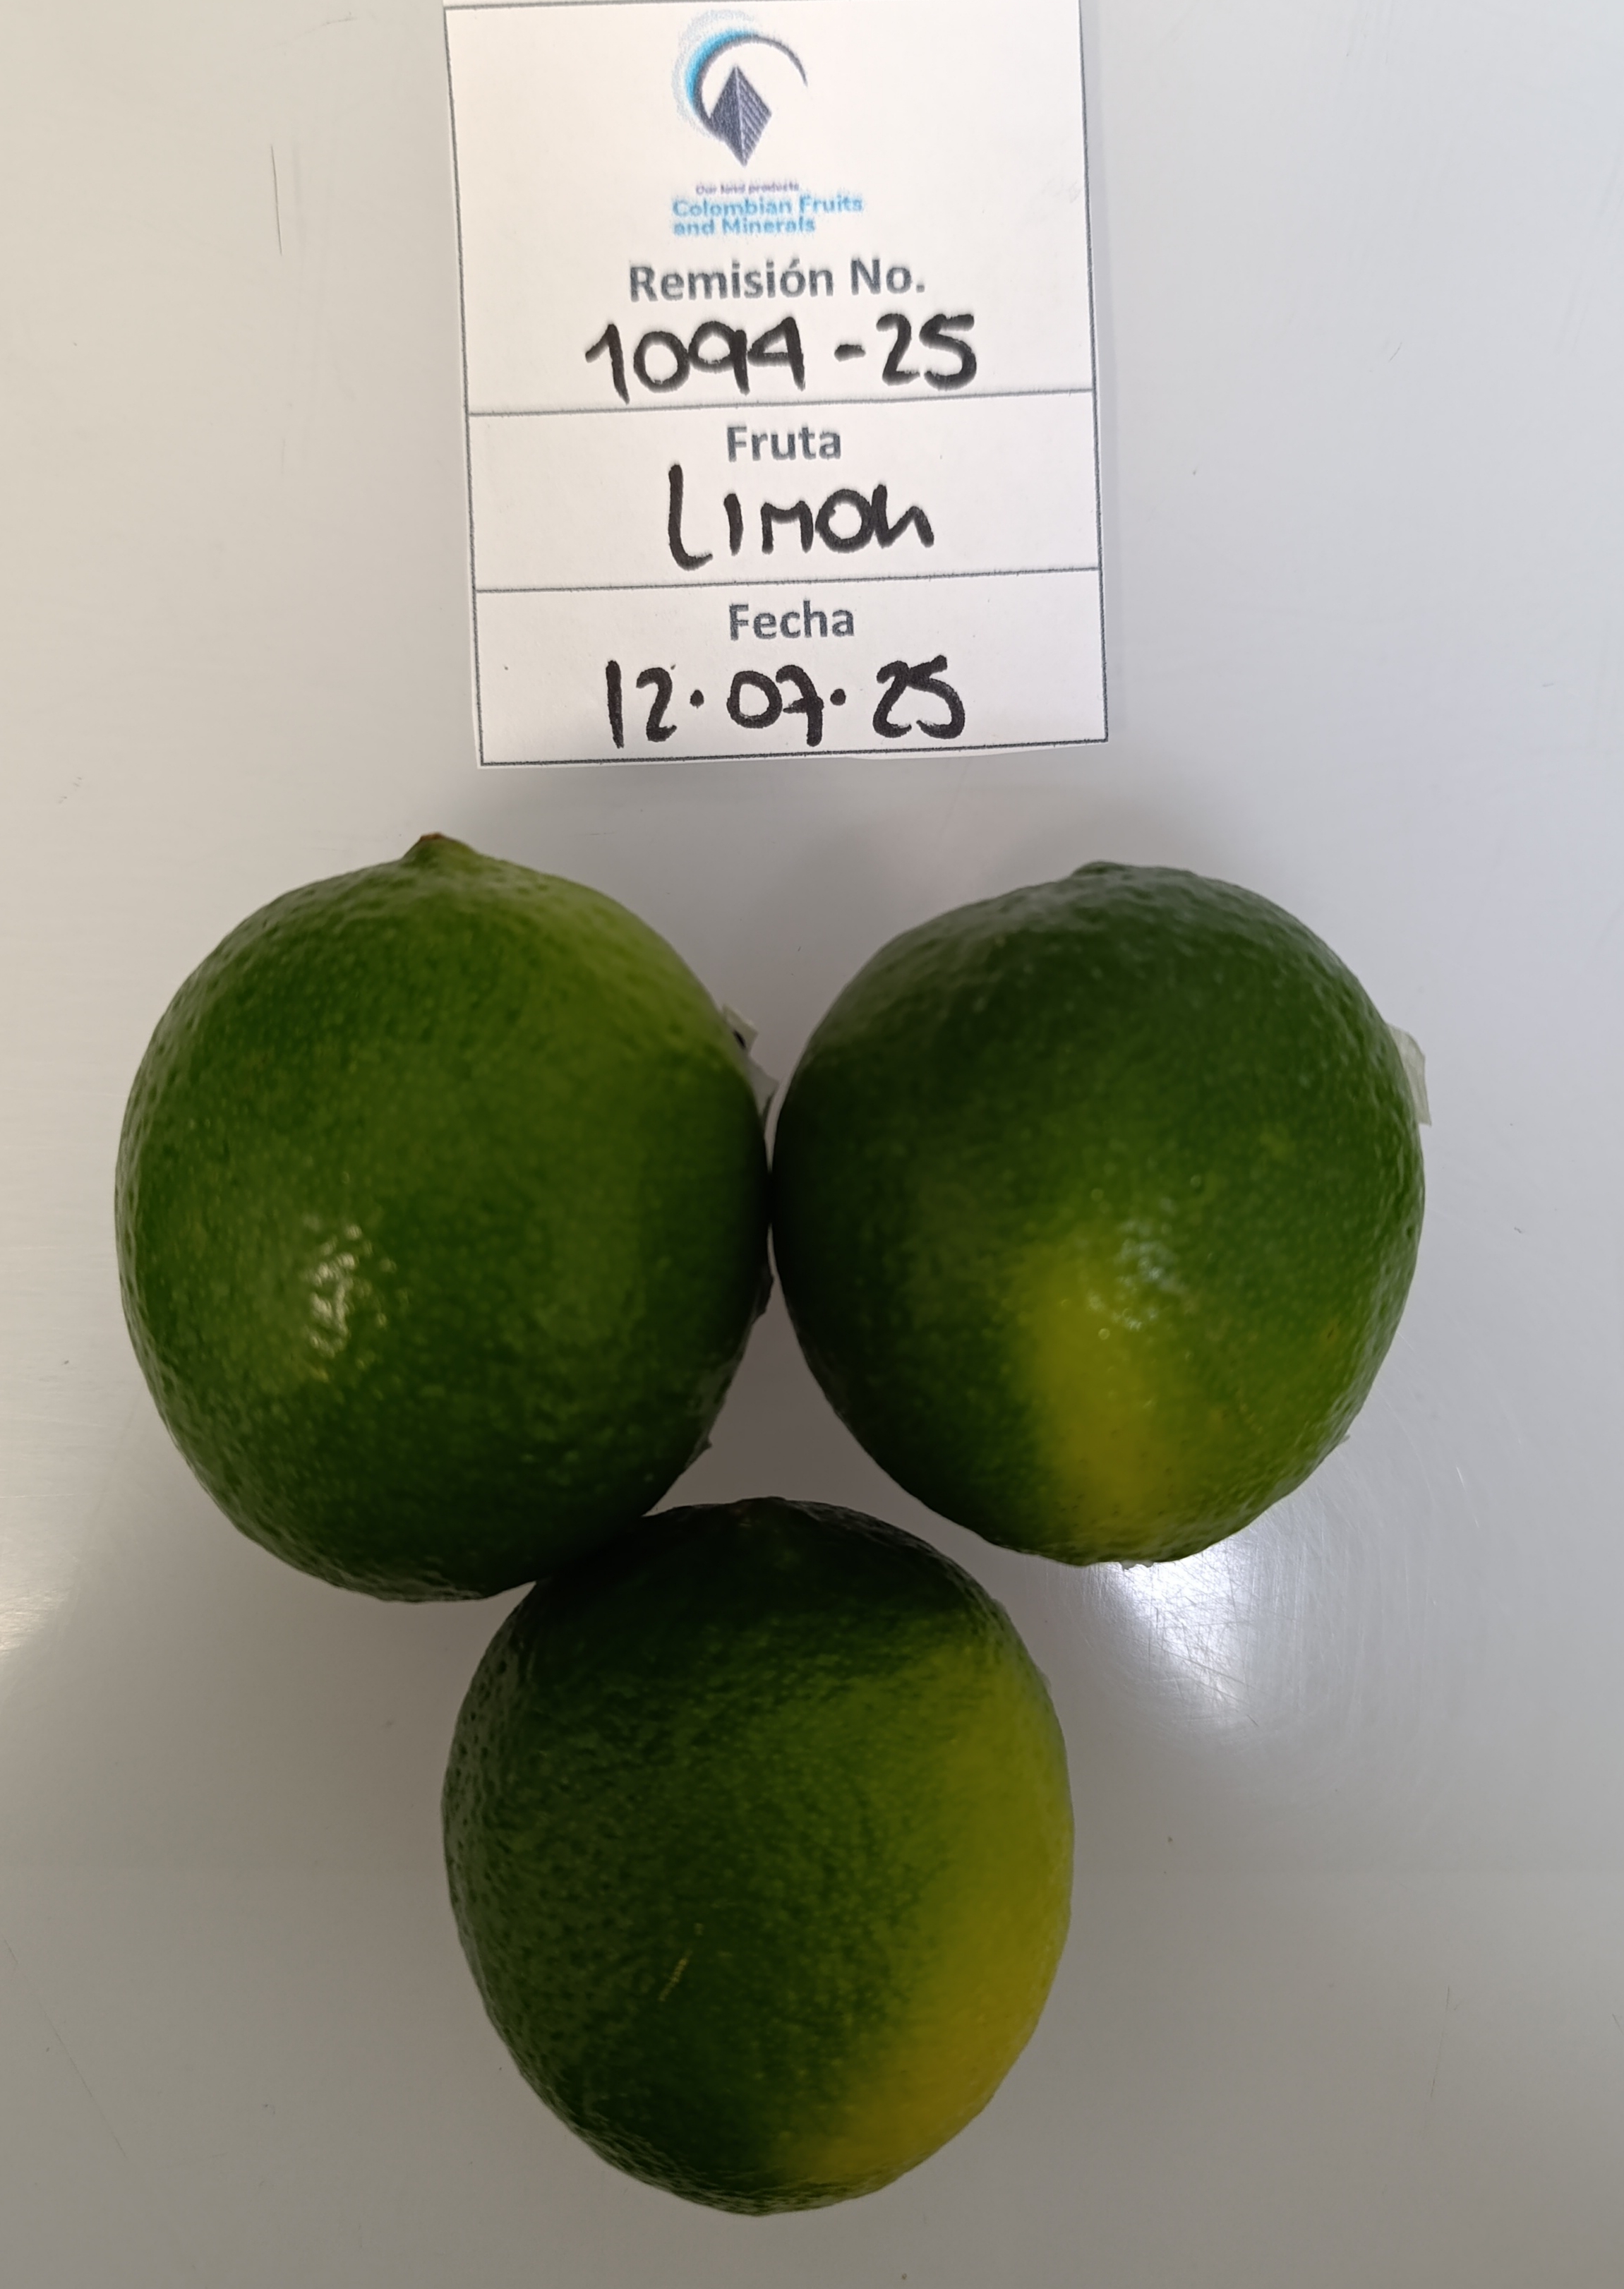 Our land products
Colombian Fruits
and Minerals
Remisión No.
1094-25
Fruta
Limon
Fecha
12.07.25